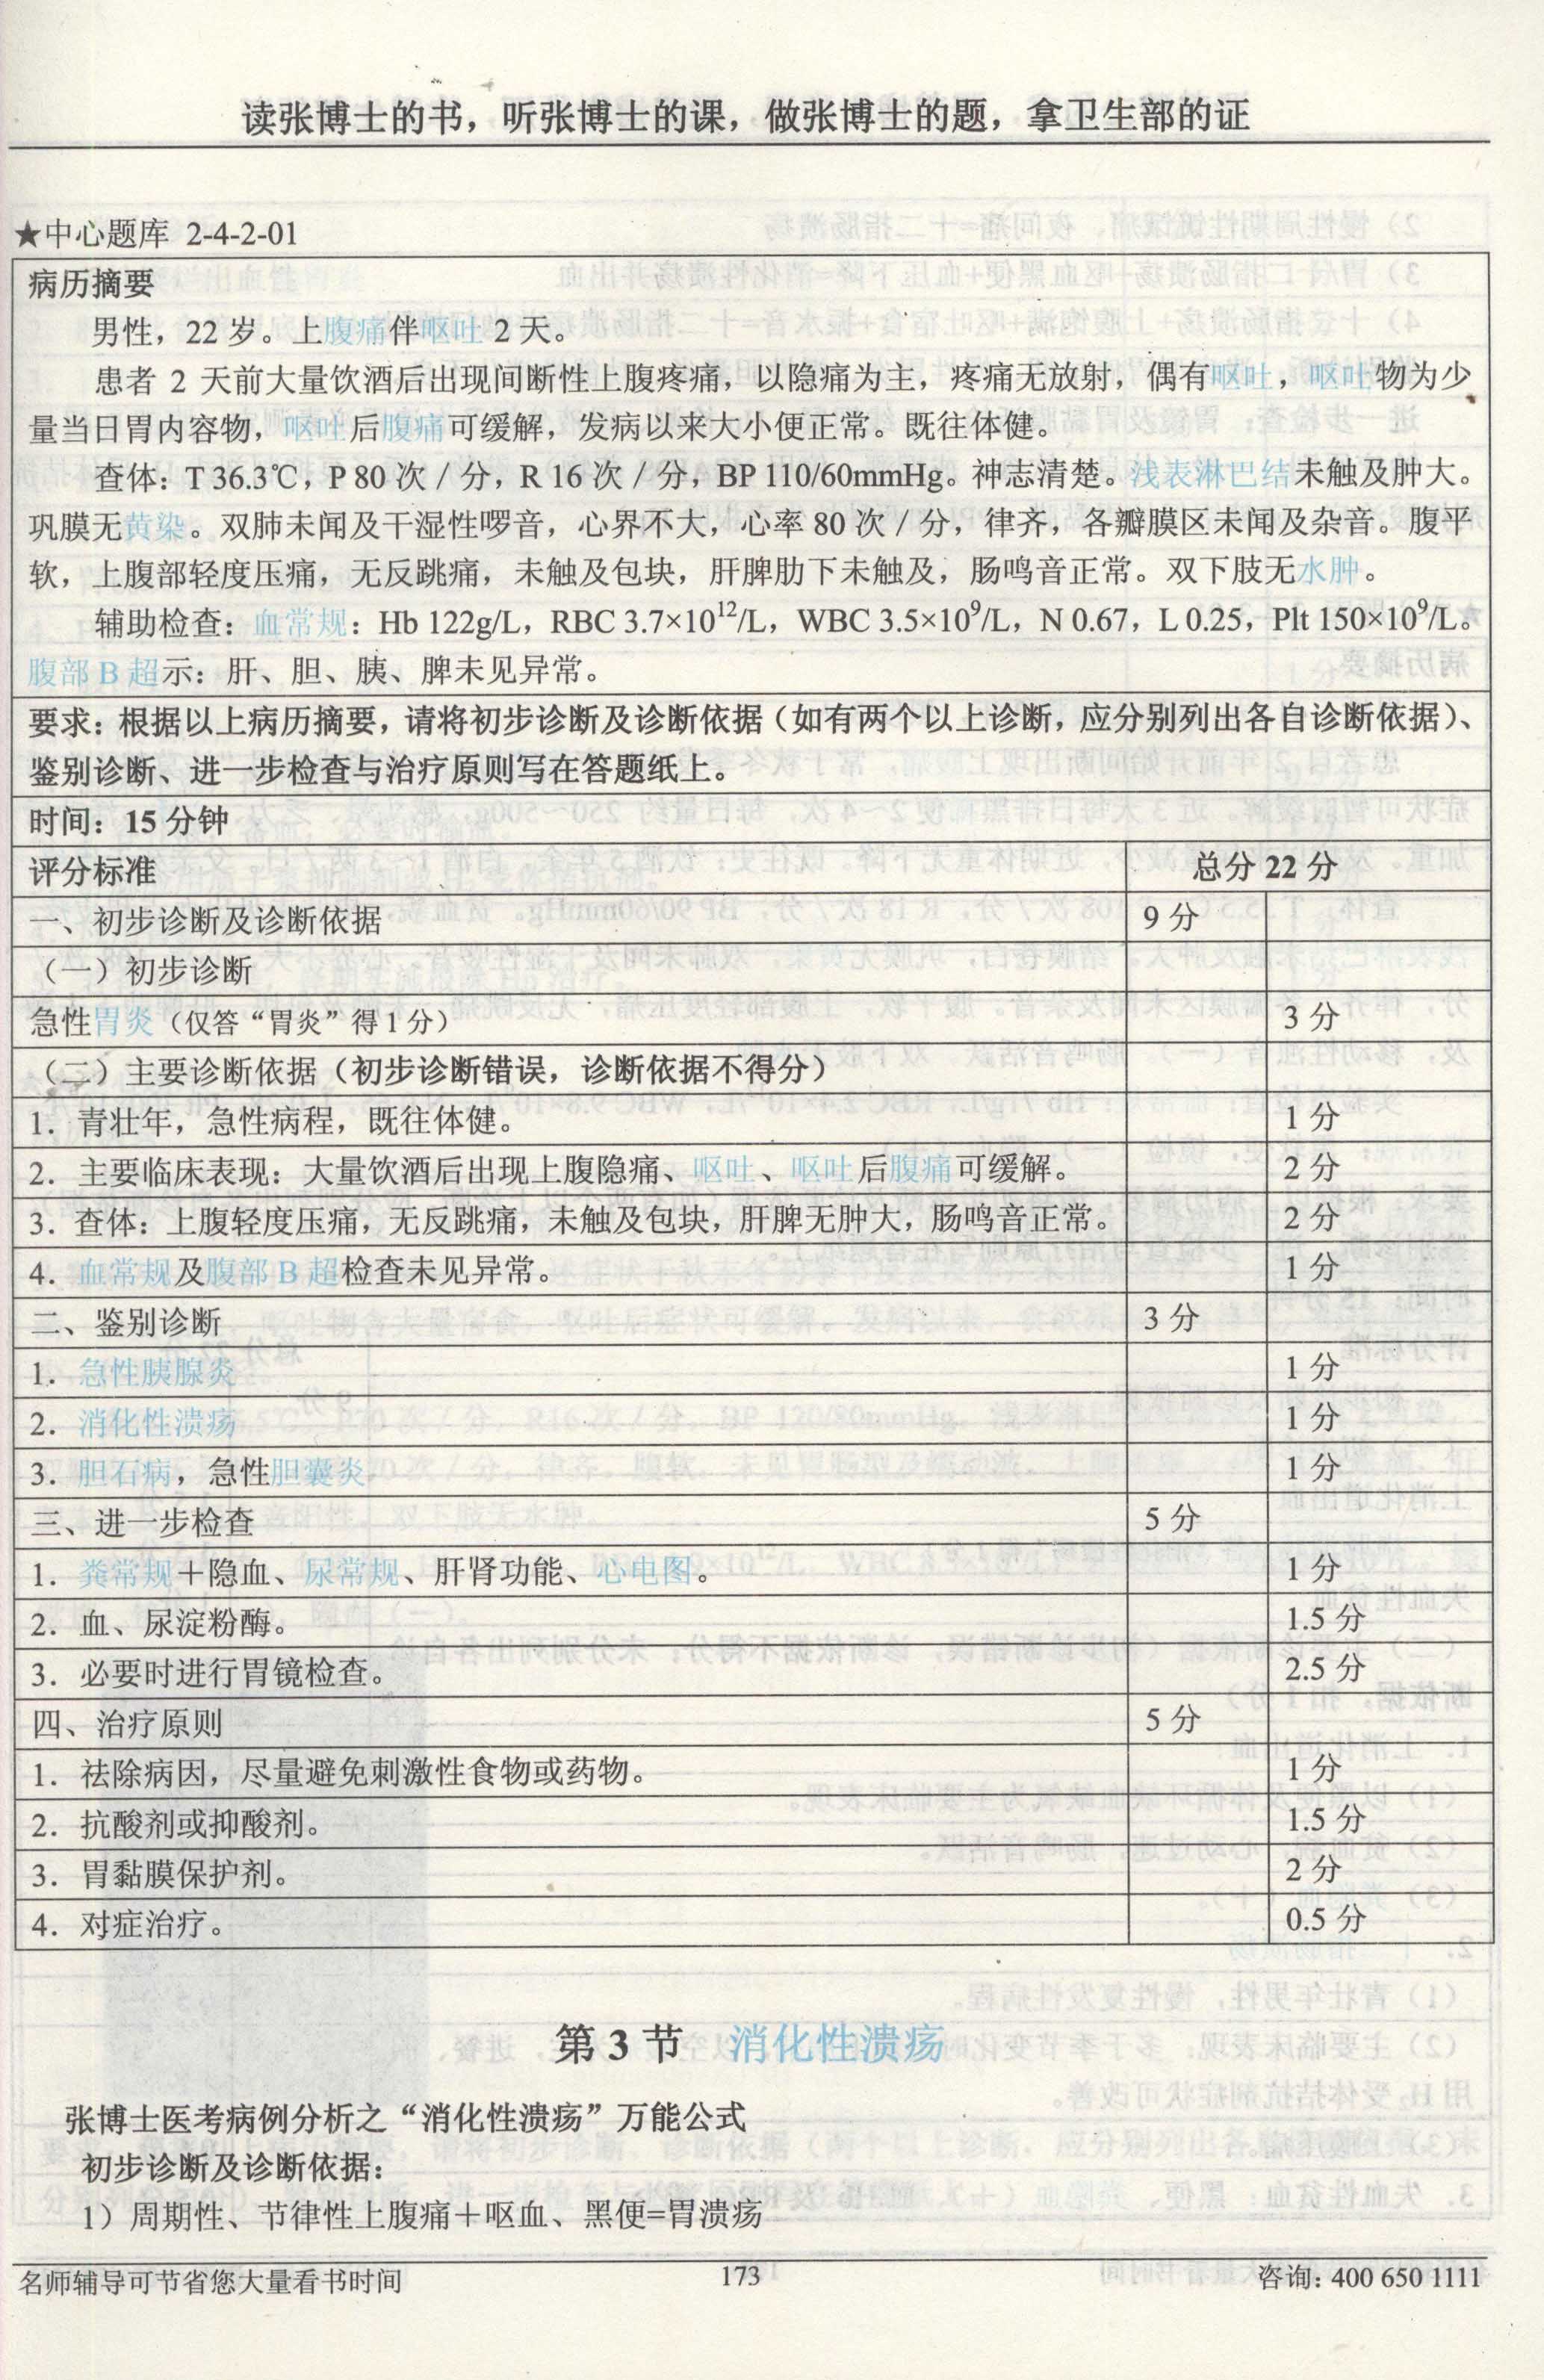 读张博士的书，听张博士的课，做张博士的题，拿卫生部的证
★中心题库 2-4-2-01
病历摘要
男性，22 岁。上腹痛伴呕吐 2 天。
患者 2 天前大量饮酒后出现间断性上腹疼痛，以隐痛为主，疼痛无放射，偶有呕吐，呕吐物为少
量当日胃内容物，呕吐后腹痛可缓解，发病以来大小便正常。既往体健。
查体：T 36.3℃，P 80 次／分，R 16 次／分，BP 110/60mmHg。神志清楚。浅表淋巴结未触及肿大。
巩膜无黄染。双肺未闻及干湿性啰音，心界不大，心率 80 次／分，律齐，各瓣膜区未闻及杂音。腹平
软，上腹部轻度压痛，无反跳痛，未触及包块，肝脾肋下未触及，肠鸣音正常。双下肢无水肿。
辅助检查：血常规：Hb 122g/L，RBC 3.7×10¹²/L，WBC 3.5×10⁹/L，N 0.67，L 0.25，Plt 150×10⁹/L。
腹部 B 超示：肝、胆、胰、脾未见异常。
要求：根据以上病历摘要，请将初步诊断及诊断依据（如有两个以上诊断，应分别列出各自诊断依据）、
鉴别诊断、进一步检查与治疗原则写在答题纸上。
时间：15 分钟
评分标准 总分 22 分
一、初步诊断及诊断依据 9 分
（一）初步诊断
急性胃炎（仅答“胃炎”得 1 分） 3 分
（二）主要诊断依据（初步诊断错误，诊断依据不得分）
1．青壮年，急性病程，既往体健。 1 分
2．主要临床表现：大量饮酒后出现上腹隐痛、呕吐、呕吐后腹痛可缓解。 2 分
3．查体：上腹轻度压痛，无反跳痛，未触及包块，肝脾无肿大，肠鸣音正常。 2 分
4．血常规及腹部 B 超检查未见异常。 1 分
二、鉴别诊断 3 分
1．急性胰腺炎 1 分
2．消化性溃疡 1 分
3．胆石病，急性胆囊炎 1 分
三、进一步检查 5 分
1．粪常规＋隐血、尿常规、肝肾功能、心电图。 1 分
2．血、尿淀粉酶。 1.5 分
3．必要时进行胃镜检查。 2.5 分
四、治疗原则 5 分
1．祛除病因，尽量避免刺激性食物或药物。 1 分
2．抗酸剂或抑酸剂。 1.5 分
3．胃黏膜保护剂。 2 分
4．对症治疗。 0.5 分
第 3 节 消化性溃疡
张博士医考病例分析之“消化性溃疡”万能公式
初步诊断及诊断依据：
1）周期性、节律性上腹痛＋呕血、黑便=胃溃疡
名师辅导可节省您大量看书时间 173 咨询：400 650 1111